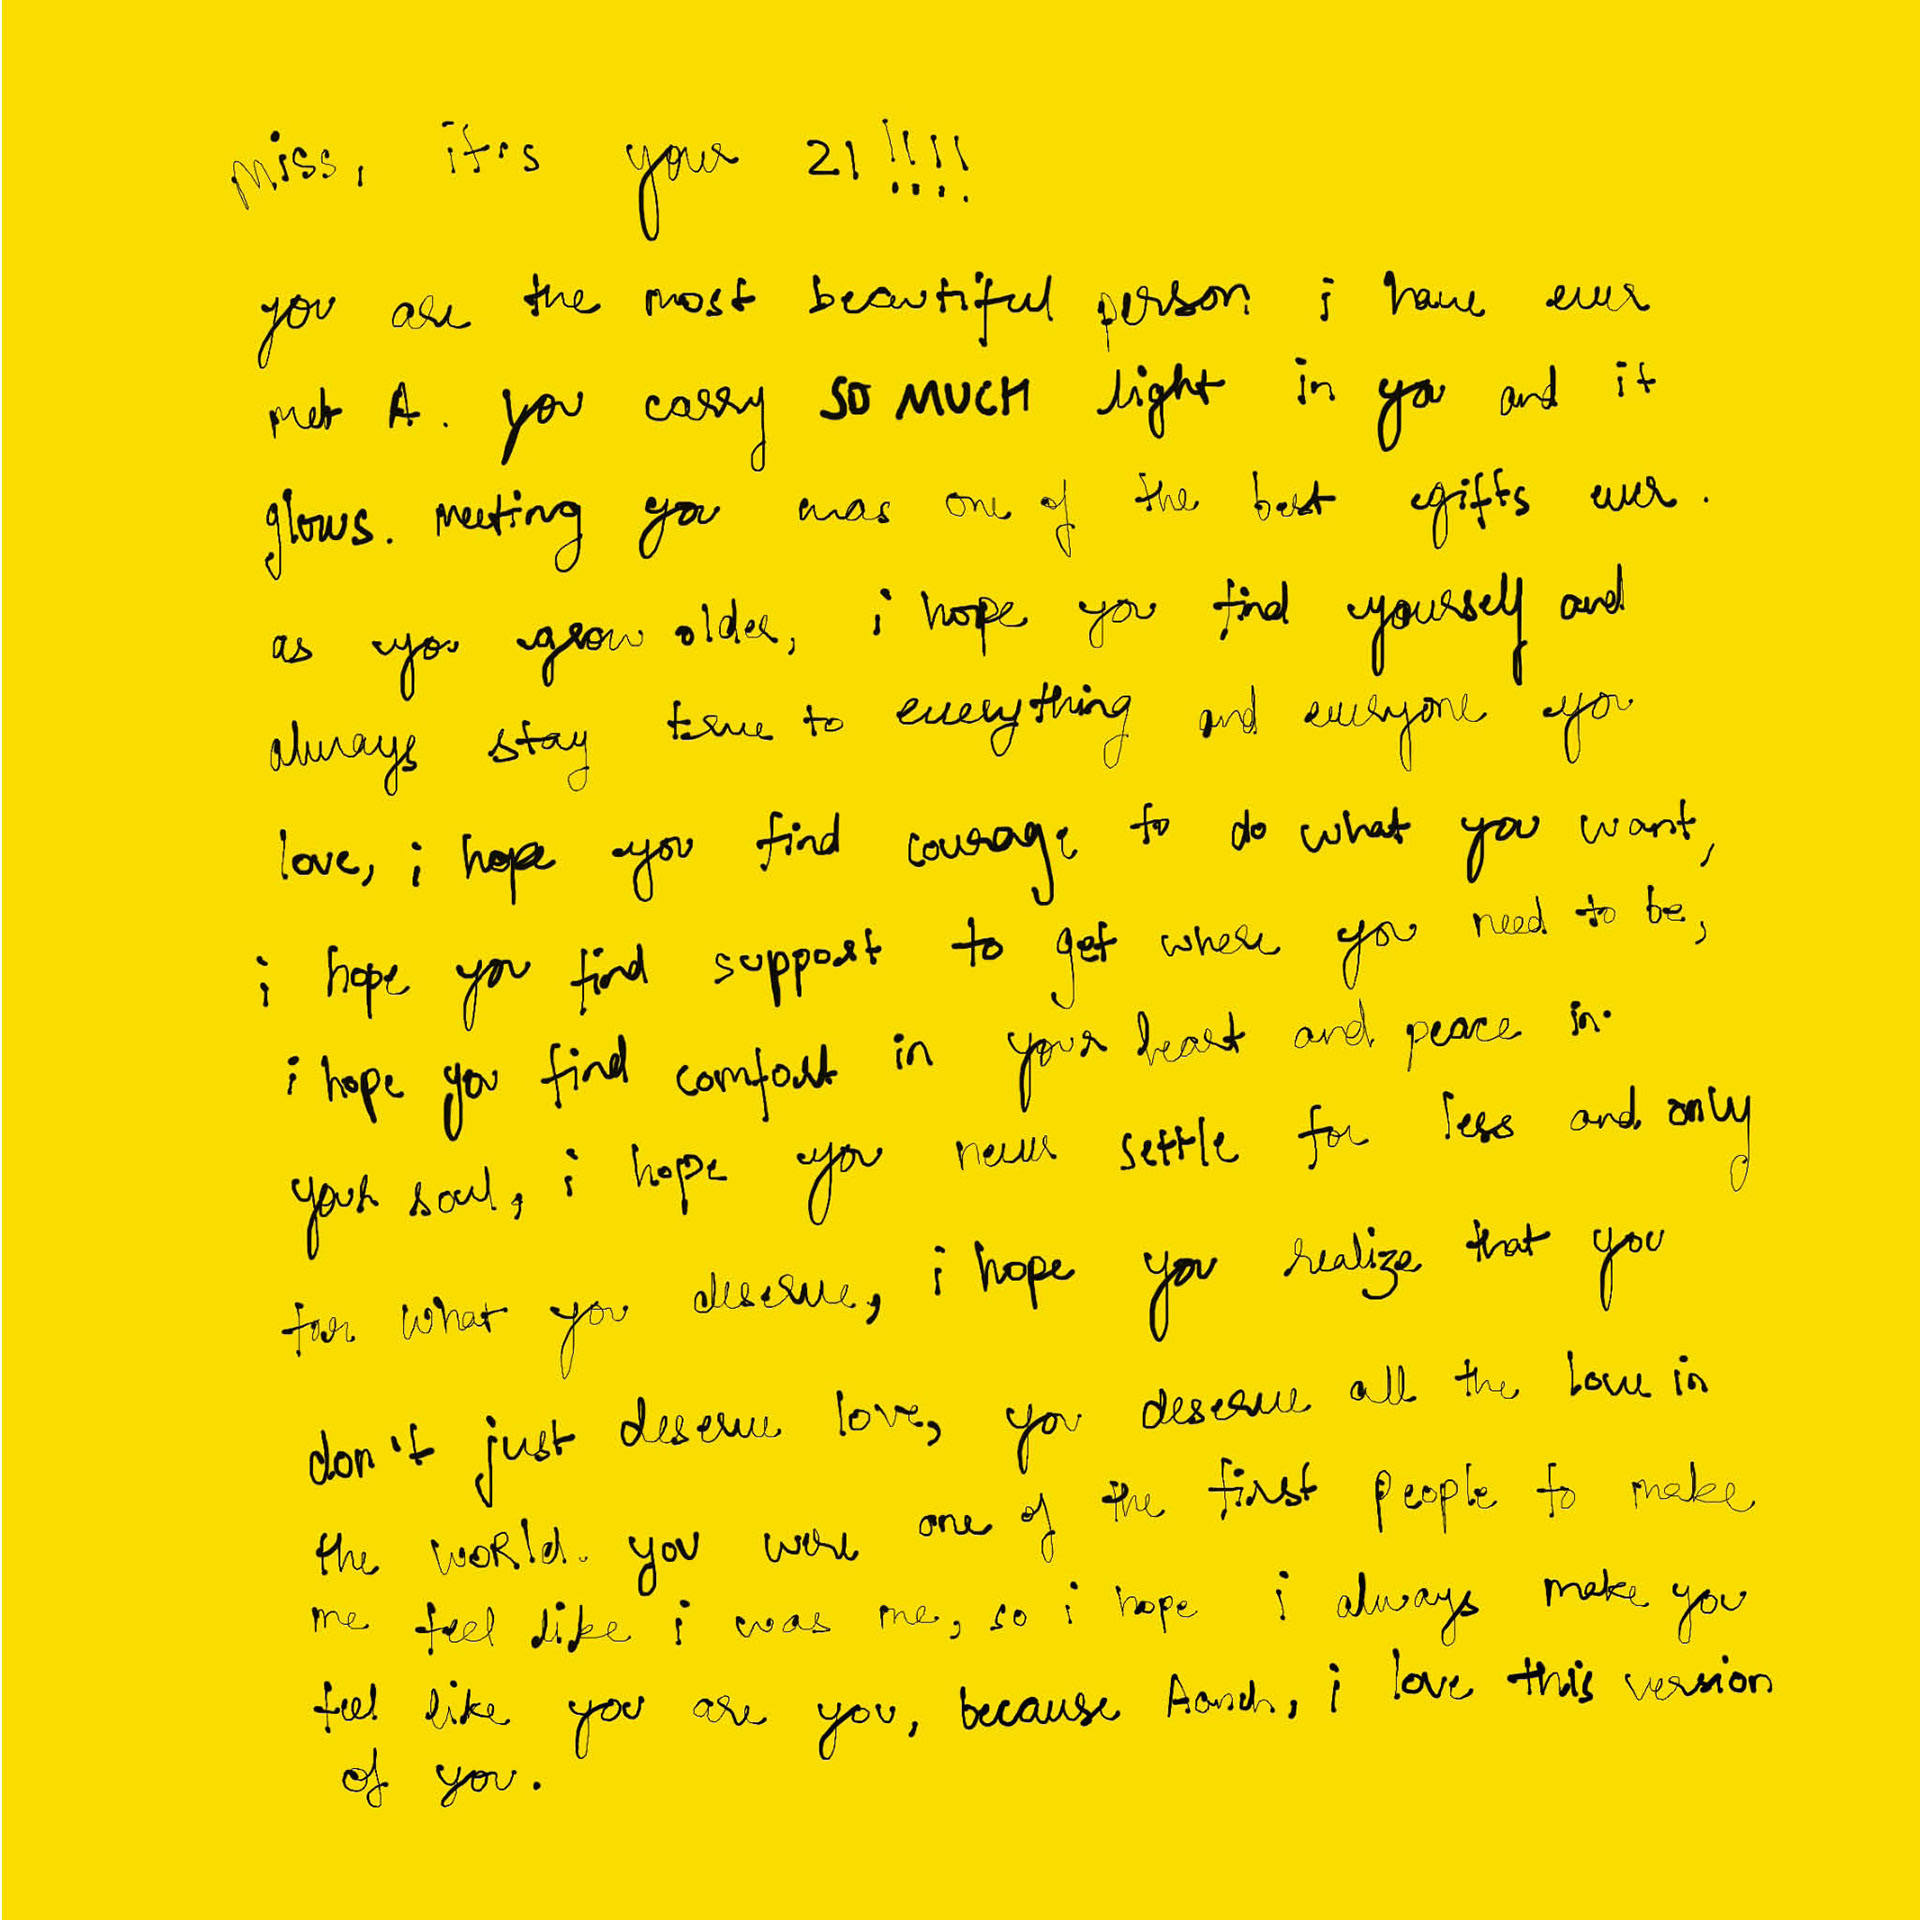 Miss, it's your 21!!!!
you are the most beautiful person i have ever
met A. you carry SO MUCH light in you and it
glows. meeting you was one of the best gifts ever.
as you grow older, i hope you find yourself and
always stay true to everything and everyone you
love, i hope you find courage to do what you want,
i hope you find support to get where you need to be,
i hope you find comfort in your heart and peace in
your soul, i hope you never settle for less and only
for what you deserve, i hope you realize that you
don't just deserve love, you deserve all the love in
the world. you were one of the first people to make
me feel like i was me, so i hope i always make you
feel like you are you, because Aanch, i love this version
of you.